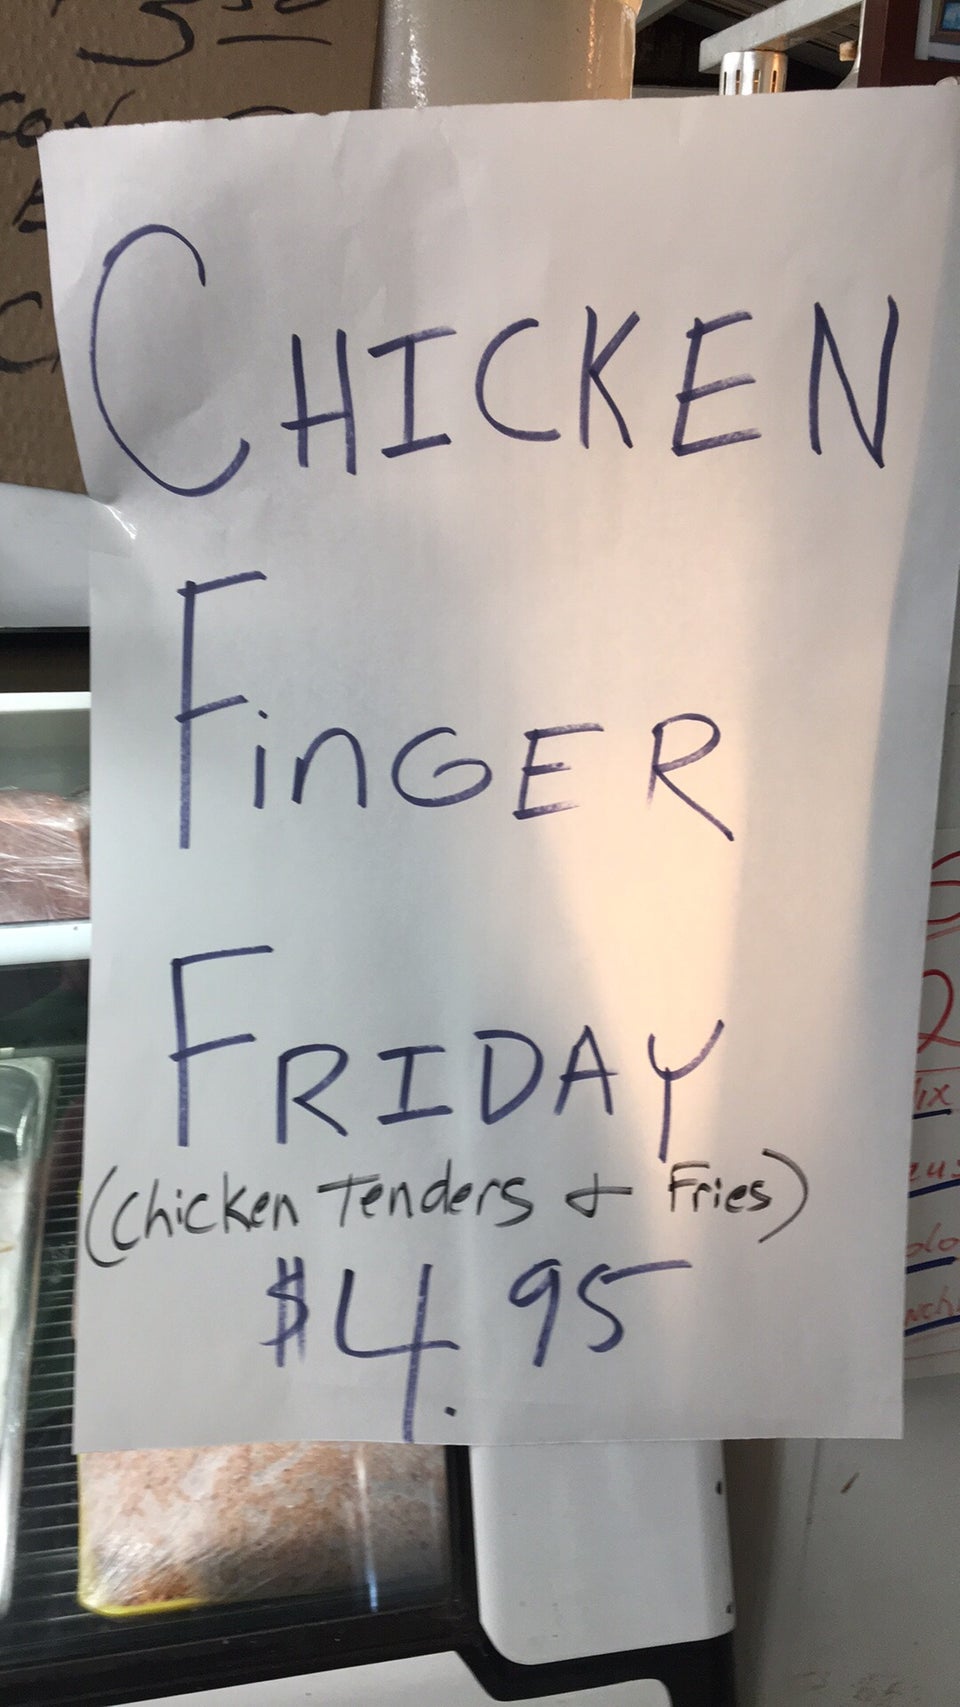 CHICKEN
FinGER
FRIDAY
(Chicken Tenders & Fries)
$4.95